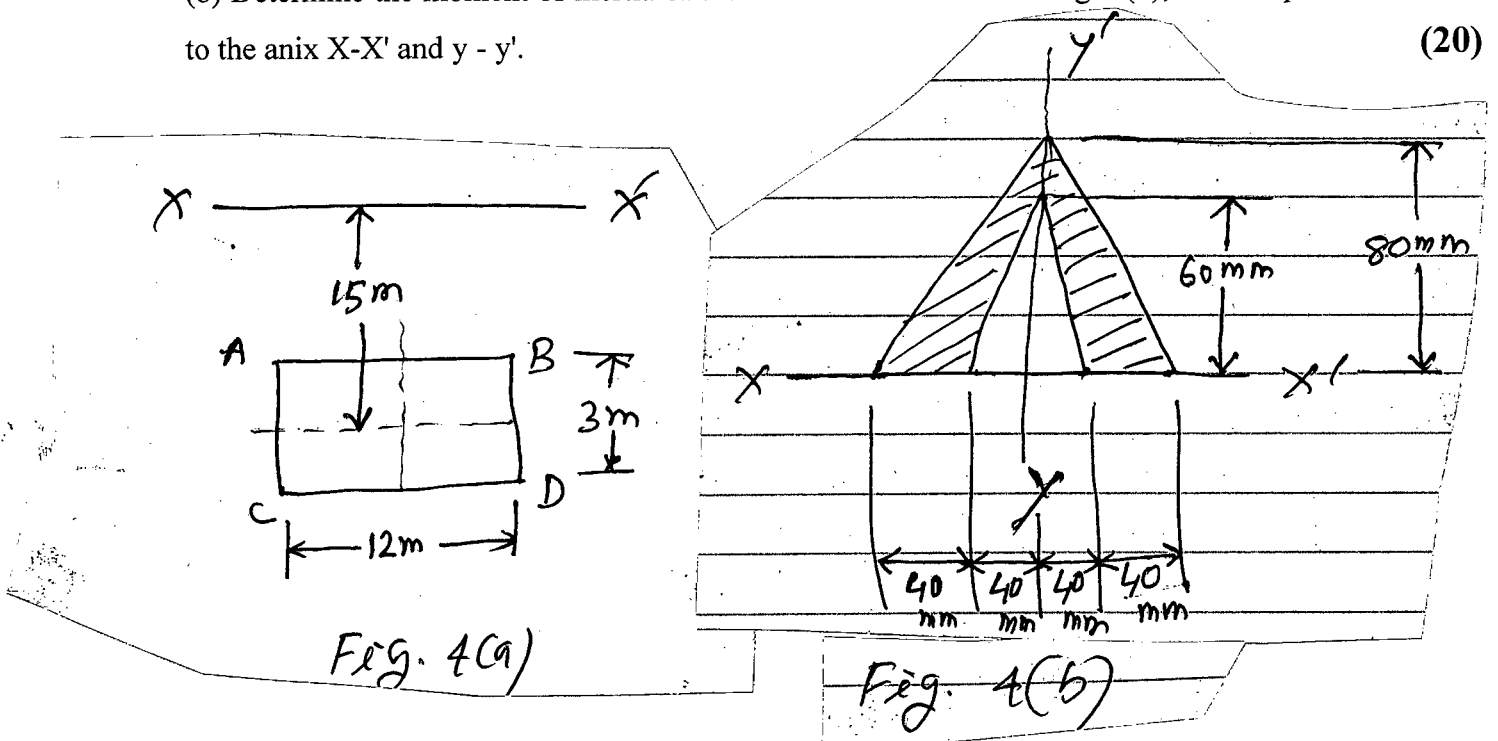 to the anix X-X' and y - y'.
(20)
X X'
15m
A B
3m
C D
12m
Fig. 4(a)
y'
80mm
60mm
X X'
y
40 mm 40 mm 40 mm 40 mm
Fig. 4(b)